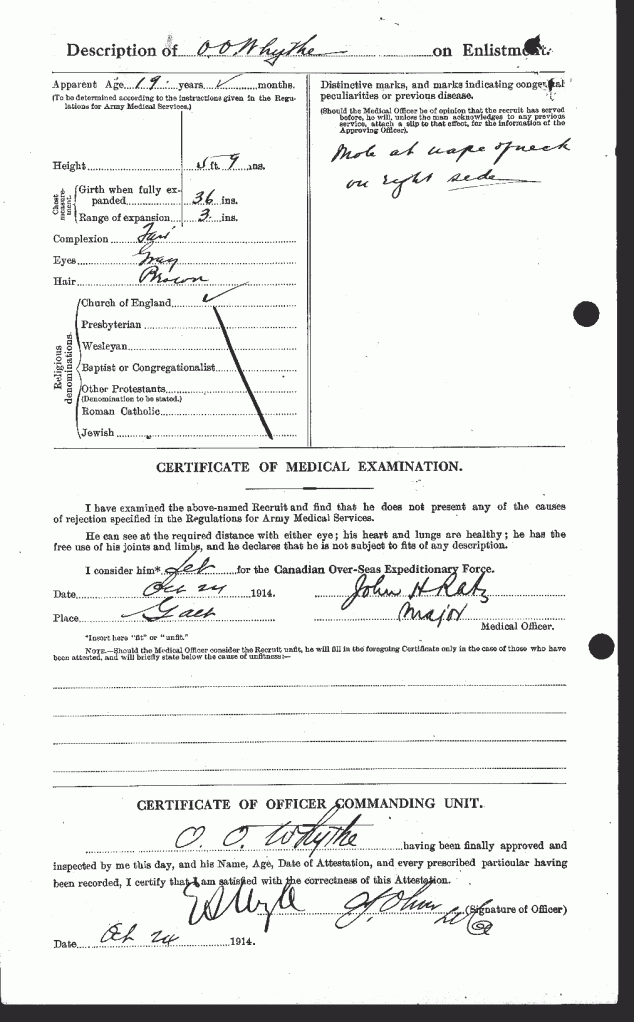 Description of O O Whythe on Enlistment.
Apparent Age 19 years months.
(To be determined according to the instructions given in the Regu-
lations for Army Medical Services.)
Height 5 ft. 9 ins.
Chest measure-ment.
Girth when fully ex-
panded 36 ins.
Range of expansion 3 ins.
Complexion Fair
Eyes Gray
Hair Brown
Religious denominations.
Church of England ✓
Presbyterian
Wesleyan
Baptist or Congregationalist
Other Protestants
(Denomination to be stated.)
Roman Catholic
Jewish
Distinctive marks, and marks indicating congenital
peculiarities or previous disease.
(Should the Medical Officer be of opinion that the recruit has served
before, he will, unless the man acknowledges to any previous
service, attach a slip to that effect, for the information of the
Approving Officer).
Mole at nape of neck
on right side
CERTIFICATE OF MEDICAL EXAMINATION.
I have examined the above-named Recruit and find that he does not present any of the causes
of rejection specified in the Regulations for Army Medical Services.
He can see at the required distance with either eye; his heart and lungs are healthy; he has the
free use of his joints and limbs, and he declares that he is not subject to fits of any description.
I consider him* fit for the Canadian Over-Seas Expeditionary Force.
Date Oct 24 1914.
Place Galt
John H Ratz
Major
Medical Officer.
*Insert here "fit" or "unfit."
NOTE.—Should the Medical Officer consider the Recruit unfit, he will fill in the foregoing Certificate only in the case of those who have
been attested, and will briefly state below the cause of unfitness:—
CERTIFICATE OF OFFICER COMMANDING UNIT.
O. O. Whythe having been finally approved and
inspected by me this day, and his Name, Age, Date of Attestation, and every prescribed particular having
been recorded, I certify that I am satisfied with the correctness of this Attestation.
(Signature of Officer)
Date Oct 24 1914.